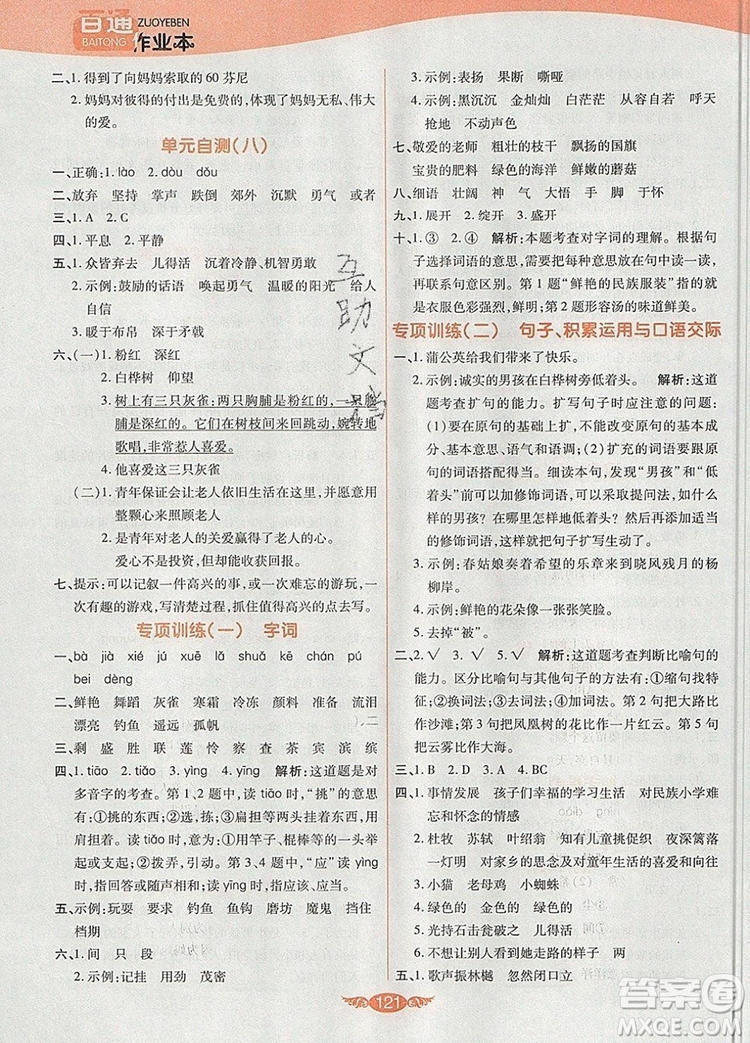 百通
BAITONG
ZUOYEBEN
作业本
二、1. 得到了向妈妈索取的 60 芬尼
2. 妈妈对彼得的付出是免费的,体现了妈妈无私、伟大
的爱。
单元自测(八)
一、正确:1. lào 2. dòu dǒu
二、放弃 坚持 掌声 跌倒 郊外 沉默 勇气 或者
三、1. A 2. C
四、1. 平息 2. 平静
五、1. 众皆弃去 儿得活 沉着冷静、机智勇敢
2. 示例:鼓励的话语 唤起勇气 温暖的阳光 给人
自信
3. 暖于布帛 深于矛戟
六、(一)1. 粉红 深红
2. 白桦树 仰望
3. 树上有三只灰雀:两只胸脯是粉红的,一只胸
脯是深红的。它们在树枝间来回跳动,婉转地
歌唱,非常惹人喜爱。
4. 他喜爱这三只灰雀
(二)1. 青年保证会让老人依旧生活在这里,并愿意用
整颗心来照顾老人
2. 是青年对老人的关爱赢得了老人的心。
爱心不是投资,但却能收获回报。
七、提示:可以记叙一件高兴的事,等等,如有意思的游玩,
有趣的游戏,写清楚过程,抓住值得高兴的点去写。
专项训练(一) 字词
一、bà jià xié jú xuē lā shuǎ kē chán pú
bei dèng
二、鲜艳 舞蹈 灰雀 寒霜 冷冻 颜料 准备 流泪
漂亮 钓鱼 遥远 孤帆
三、剩 盛 胜 联 莲 怜 察 查 茶 宾 滨 缤
四、1. tiāo 2. tiǎo 3. yìng 4. yīng 解析:这道题是对
多音字的考查。第 1、2 题中,“挑”的读音为 tiāo
时,①挑的东西;②选,拣;③扁担等两头挂上东西,用
肩担着。读 tiǎo 时,①用竿子、棍棒等的一头举起或
支起;②拨弄,弄动。第 3、4 题中,“应”读 yìng
时,指回答或随声相和;读 yīng 时,指应该。
五、示例:玩耍 要求 钓鱼 鱼钩 磨坊 魔鬼 挡住
档期
六、1. 间 只 段
2. 示例:记挂 用劲 茂密
3. 示例:表扬 果断 嘶哑
4. 示例:黑沉沉 金灿灿 白茫茫 从容自若 呼天
抢地 不动声色
七、敬爱的老师 粗壮的枝干 飘扬的国旗
宝贵的肥料 绿色的海洋 鲜嫩的蘑菇
八、细语 壮阔 神 气 大 悟 手 干
九、1. 展开 2. 绽开 3. 盛开
十、1. ③ 2. ④ 解析:本题考查对字词的理解。根据句
子选择词语的意思,可以把意思放在句子中读一读,
再看句意区别。第 1 题“鲜艳的民族服装”指的是说
是衣服色彩强烈,鲜明;第 2 题形容汤的味道鲜美。
专项训练(二) 句子、积累运用与口语交际
一、1. 蒲公英给我们带来了快乐。
2. 示例:诚实的男孩在白桦树旁低着头。 解析:这道
题考查了扩句的能力。扩写句子时应注意的问题:
(1)要在原句的基础上扩,扩充后要保持原句的结
构、基本意思、语气和语调;(2)扩充的词语要跟原
句的词语搭配得当。细读本句,发现“男孩”和“低
着头”前可以加修饰词语,可以采取提问法,如什么
样的男孩?在哪里怎样地低着头?然后加上适当
的修饰词语,这样就把句子扩写完整了。
3. 示例:春姑娘奏着希望的乐章来到晓风残月的杨
柳岸。
4. 示例:鲜艳的花朵像一张张笑脸。
5. 去掉“被”。
二、2. √ 3. √ 5. √ 解析:这道题考查判断比喻句的
能力。区分比喻句与其他句子的方法有:①缩句找特
征;②换词法;③去词法。第 2 句把大路比
作沙滩;第 3 句把凤凰树的花比作一片红云。第 5 句
把云雾比作大海。
三、1. B 2. D 3. A 4. BC
四、1. 事情发展 孩子们幸福的学习生活 对民族小学难
忘和怀念的情感
2. 杜牧 苏轼 叶绍翁 知有儿童挑促织 夜深篱落
一灯明 对家乡的思念及对童年生活的喜爱和向往
3. 小猫 老母鸡 小蜘蛛
4. 绿色的 金色的 绿色的
5. 光持石击瓮破之 儿得活
6. 不想让别人看到她走路的样子 两
五、1. 歌声振林樾 忽然闭口立
互助文档
121
答案圈
MXQE.COM